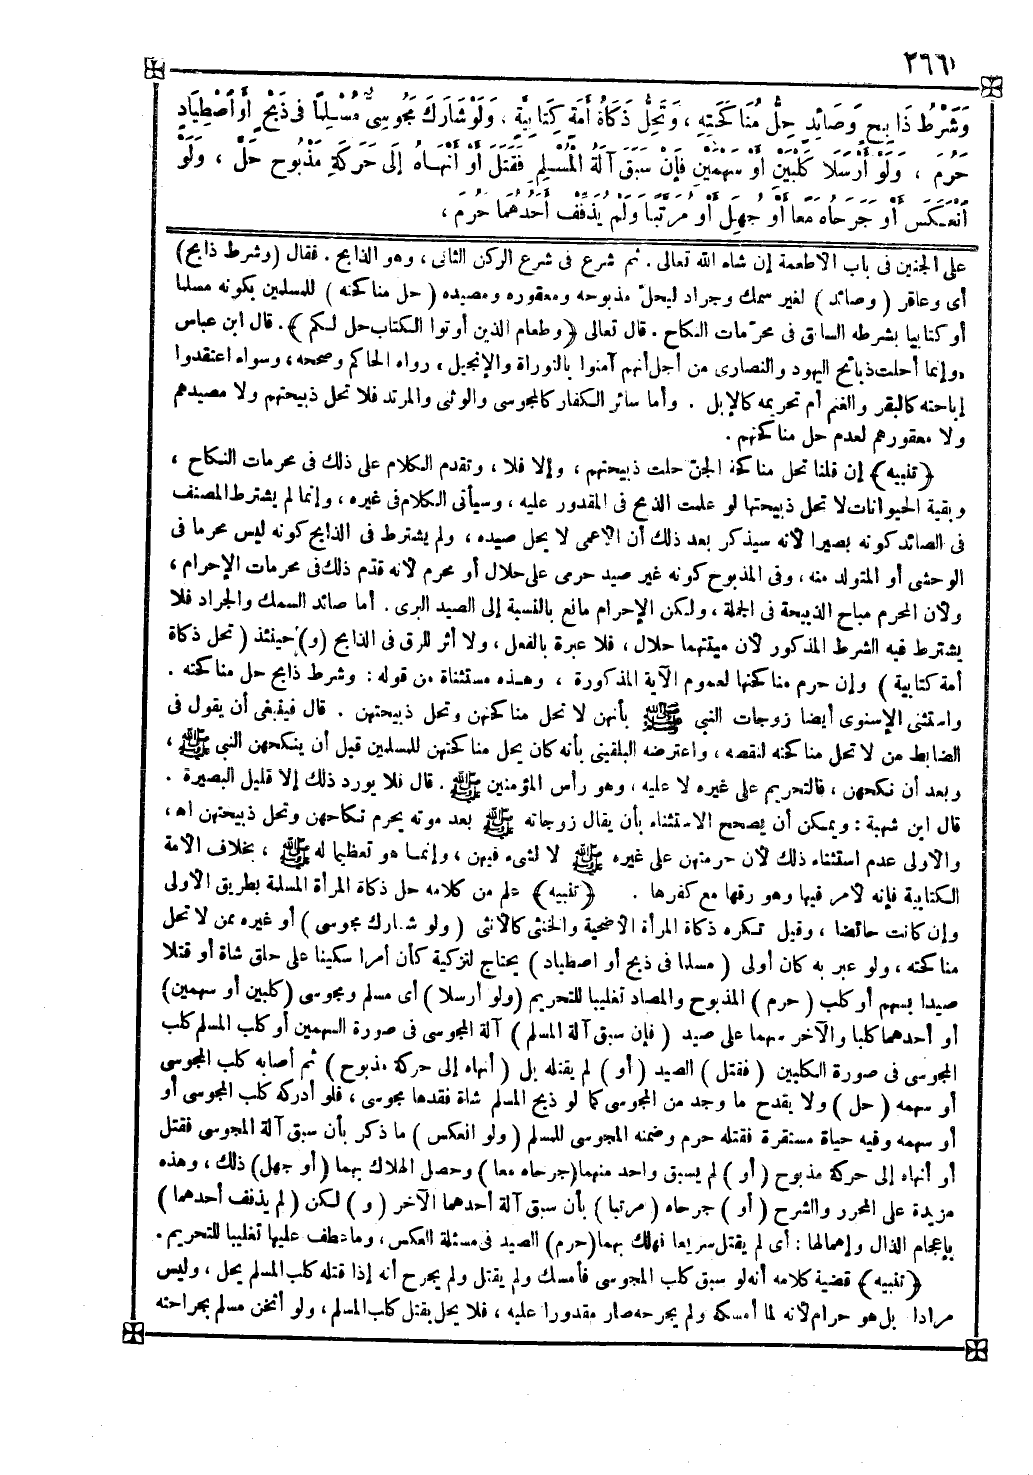 ٢٦٦
وَشَرْطُ ذَابِحٍ وَصَائِدٍ حِلُّ مُنَاكَحَتِهِ ، وَتَحِلُّ ذَكَاةُ أَمَةٍ كِتَابِيَّةٍ . وَلَوْ شَارَكَ مَجُوسِيٌّ مُسْلِمًا فِى ذَبْحٍ أَوْ اصْطِيَادٍ
حَرُمَ ، وَلَوْ أَرْسَلَا كَلْبَيْنِ أَوْ سَهْمَيْنِ فَإِنْ سَبَقَ آلَةُ الْمُسْلِمِ فَقَتَلَ أَوْ أَنْهَاهُ إِلَى حَرَكَةِ مَذْبُوحٍ حَلَّ ، وَلَوْ
انْعَكَسَ أَوْ جَرَحَاهُ مَعًا أَوْ جُهِلَ أَوْ مُرَتَّبًا وَلَمْ يُذَفِّفْ أَحَدُهُمَا حَرُمَ ،
على الجنين فى باب الأطعمة إن شاء الله تعالى . ثم شرع فى شرع الركن الثانى ، وهو الذابح . فقال (وشرط ذابح)
أى وعاقر ( وصائد ) لغير سمك وجراد ليحلّ مذبوحه ومعقوره ومصيده ( حل مناكحته ) للمسلمين بكونه مسلما
أو كتابيا بشرطه السابق فى محرّمات النكاح . قال تعالى ﴿وطعام الذين أوتوا الكتاب حل لكم﴾ . قال ابن عباس
«وإنما أحلت ذبائح اليهود والنصارى من أجل أنهم آمنوا بالتوراة والإنجيل ، رواه الحاكم وصححه ، وسواء اعتقدوا
إباحته كالبقر والغنم أم تحريمه كالإبل . وأما سائر الكفار كالمجوسى والوثنى والمرتد فلا تحل ذبيحتهم ولا مصيدهم
ولا معقورهم لعدم حل مناكحتهم .
﴿تنبيه﴾ إن قلنا تحل مناكحة الجنّ حلت ذبيحتهم ، وإلا فلا ، وتقدم الكلام على ذلك فى محرمات النكاح ،
وبقية الحيوانات لا تحل ذبيحتها لو علمت الذبح فى المقدور عليه ، وسيأتى الكلام فى غيره ، وإنما لم يشترط المصنف
فى الصائد كونه بصيرا لأنه سيذكر بعد ذلك أن الأعمى لا يحل صيده ، ولم يشترط فى الذابح كونه ليس محرما فى
الوحشى أو المتولد منه ، وفى المذبوح كونه غير صيد حرمى على حلال أو محرم لأنه قدم ذلك فى محرمات الإحرام ،
ولأن المحرم مباح الذبيحة فى الجملة ، ولكن الإحرام مانع بالنسبة إلى الصيد البرى . أما صائد السمك والجراد فلا
يشترط فيه الشرط المذكور لأن ميتتهما حلال ، فلا عبرة بالفعل ، ولا أثر للرق فى الذابح (و) حينئذ ( تحل ذكاة
أمة كتابية ) وإن حرم مناكحتها لعموم الآية المذكورة ، وهذه مستثناة من قوله : وشرط ذابح حل مناكحته .
واستثنى الإسنوى أيضا زوجات النبى ﷺ بأنهن لا تحل مناكحتهن وتحل ذبيحتهن . قال فينبغى أن يقول فى
الضابط من لا تحل مناكحته لنقصه ، واعترضه البلقينى بأنه كان يحل مناكحتهن للمسلمين قبل أن ينكحهن النبى ﷺ ،
وبعد أن نكحهن ، فالتحريم على غيره لا عليه ، وهو رأس المؤمنين ﷺ . قال فلا يورد ذلك إلا قليل البصيرة .
قال ابن شهبة : ويمكن أن يصحح الاستثناء بأن يقال زوجاته ﷺ بعد موته يحرم نكاحهن وتحل ذبيحتهن اه ،
والأولى عدم استثناء ذلك لأن حرمتهن على غيره ﷺ لا لشىء فيهن ، وإنما هو تعظيما له ﷺ ، بخلاف الأمة
الكتابية فإنه لأمر فيها وهو رقها مع كفرها . ﴿تنبيه﴾ علم من كلامه حل ذكاة المرأة المسلمة بطريق الأولى
وإن كانت حائضا ، وقيل تكره ذكاة المرأة الأضحية والخنثى كالأنثى ( ولو شارك مجوسى ) أو غيره ممن لا تحل
مناكحته ، ولو عبر به كان أولى ( مسلما فى ذبح أو اصطياد ) يحتاج لتزكية كأن أمرا سكينا على حلق شاة أو قتلا
صيدا بسهم أو كلب ( حرم ) المذبوح والمصاد تغليبا للتحريم (ولو أرسلا ) أى مسلم ومجوسى (كلبين أو سهمين)
أو أحدهما كلبا والآخر سهما على صيد ( فإن سبق آلة المسلم ) آلة المجوسى فى صورة السهمين أو كلب المسلم كلب
المجوسى فى صورة الكلبين ( فقتل ) الصيد ( أو ) لم يقتله بل ( أنهاه إلى حركة مذبوح ) ثم أصابه كلب المجوسى
أو سهمه ( حل ) ولا يقدح ما وجد من المجوسى كما لو ذبح المسلم شاة فقدها مجوسى ، فلو أدركه كلب المجوسى أو
أو سهمه وفيه حياة مستقرة فقتله حرم وضمنه المجوسى للمسلم ( ولو انعكس ) ما ذكر بأن سبق آلة المجوسى فقتل
أو أنهاه إلى حركة مذبوح ( أو ) لم يسبق واحد منهما(جرحاه معا ) وحصل الهلاك بهما ( أو جهل) ذلك ، وهذه
مزيدة على المحرر والشرح ( أو ) جرحاه ( مرتبا ) بأن سبق آلة أحدهما الآخر ( و ) لكن ( لم يذفف أحدهما )
بإعجام الذال وإهمالها : أى لم يقتل سريعا فهلك بهما (حرم) الصيد فى مسئلة العكس ، وما عطف عليها تغليبا للتحريم .
﴿تنبيه﴾ قضية كلامه أنه لو سبق كلب المجوسى فأمسك ولم يقتل ولم يجرح أنه إذا قتله كلب المسلم يحل ، وليس
مرادا بل هو حرام لأنه لما أمسكه ولم يجرحه صار مقدورا عليه ، فلا يحل بقتل كلب المسلم ، ولو أثخن مسلم بجراحته